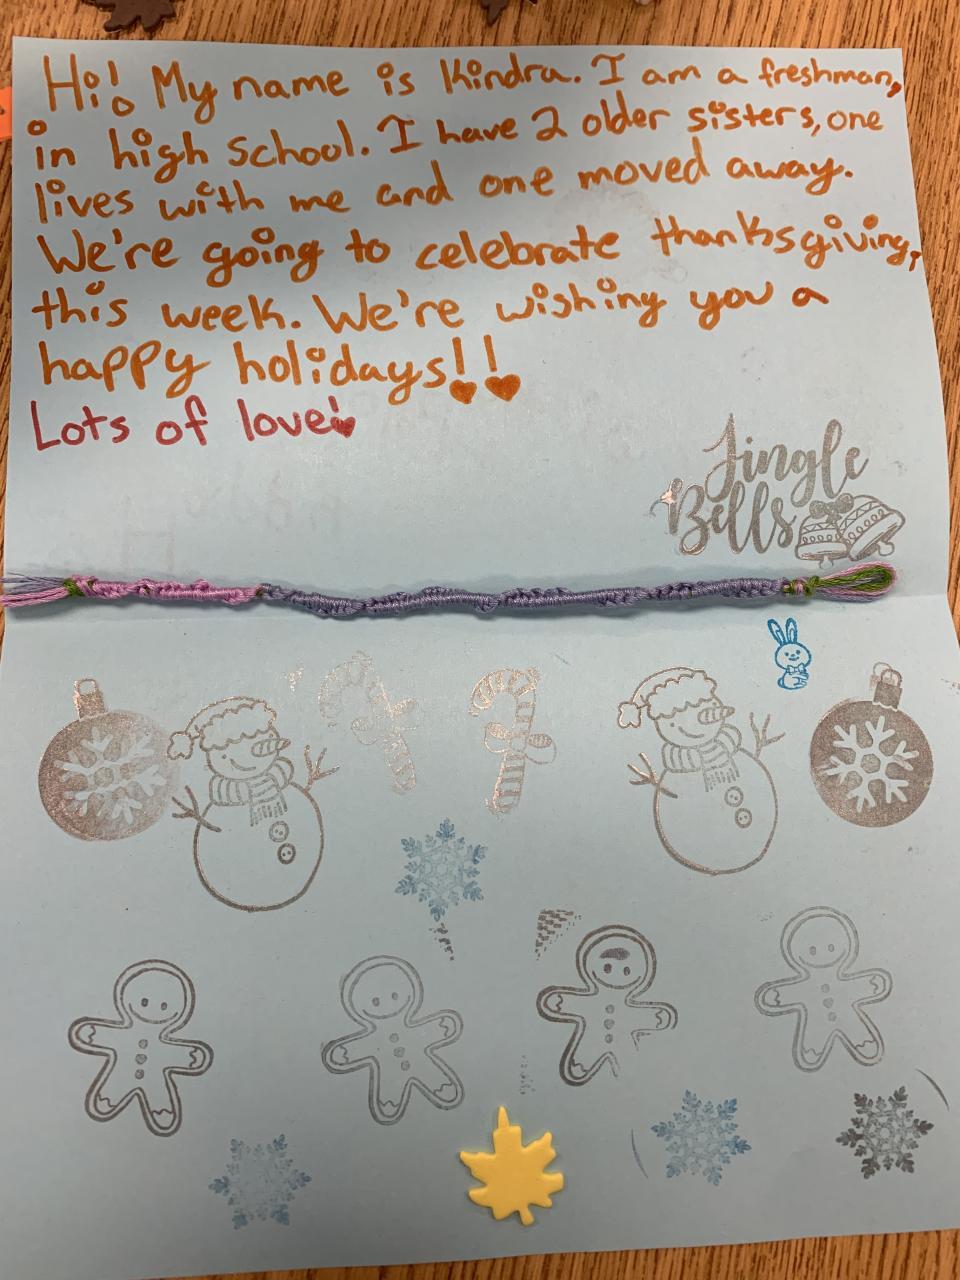 Hi! My name is Kindra. I am a freshman,
in high school. I have 2 older sisters, one
lives with me and one moved away.
We're going to celebrate thanksgiving,
this week. We're wishing you a
happy holidays!!
Lots of love!
Jingle
Bells